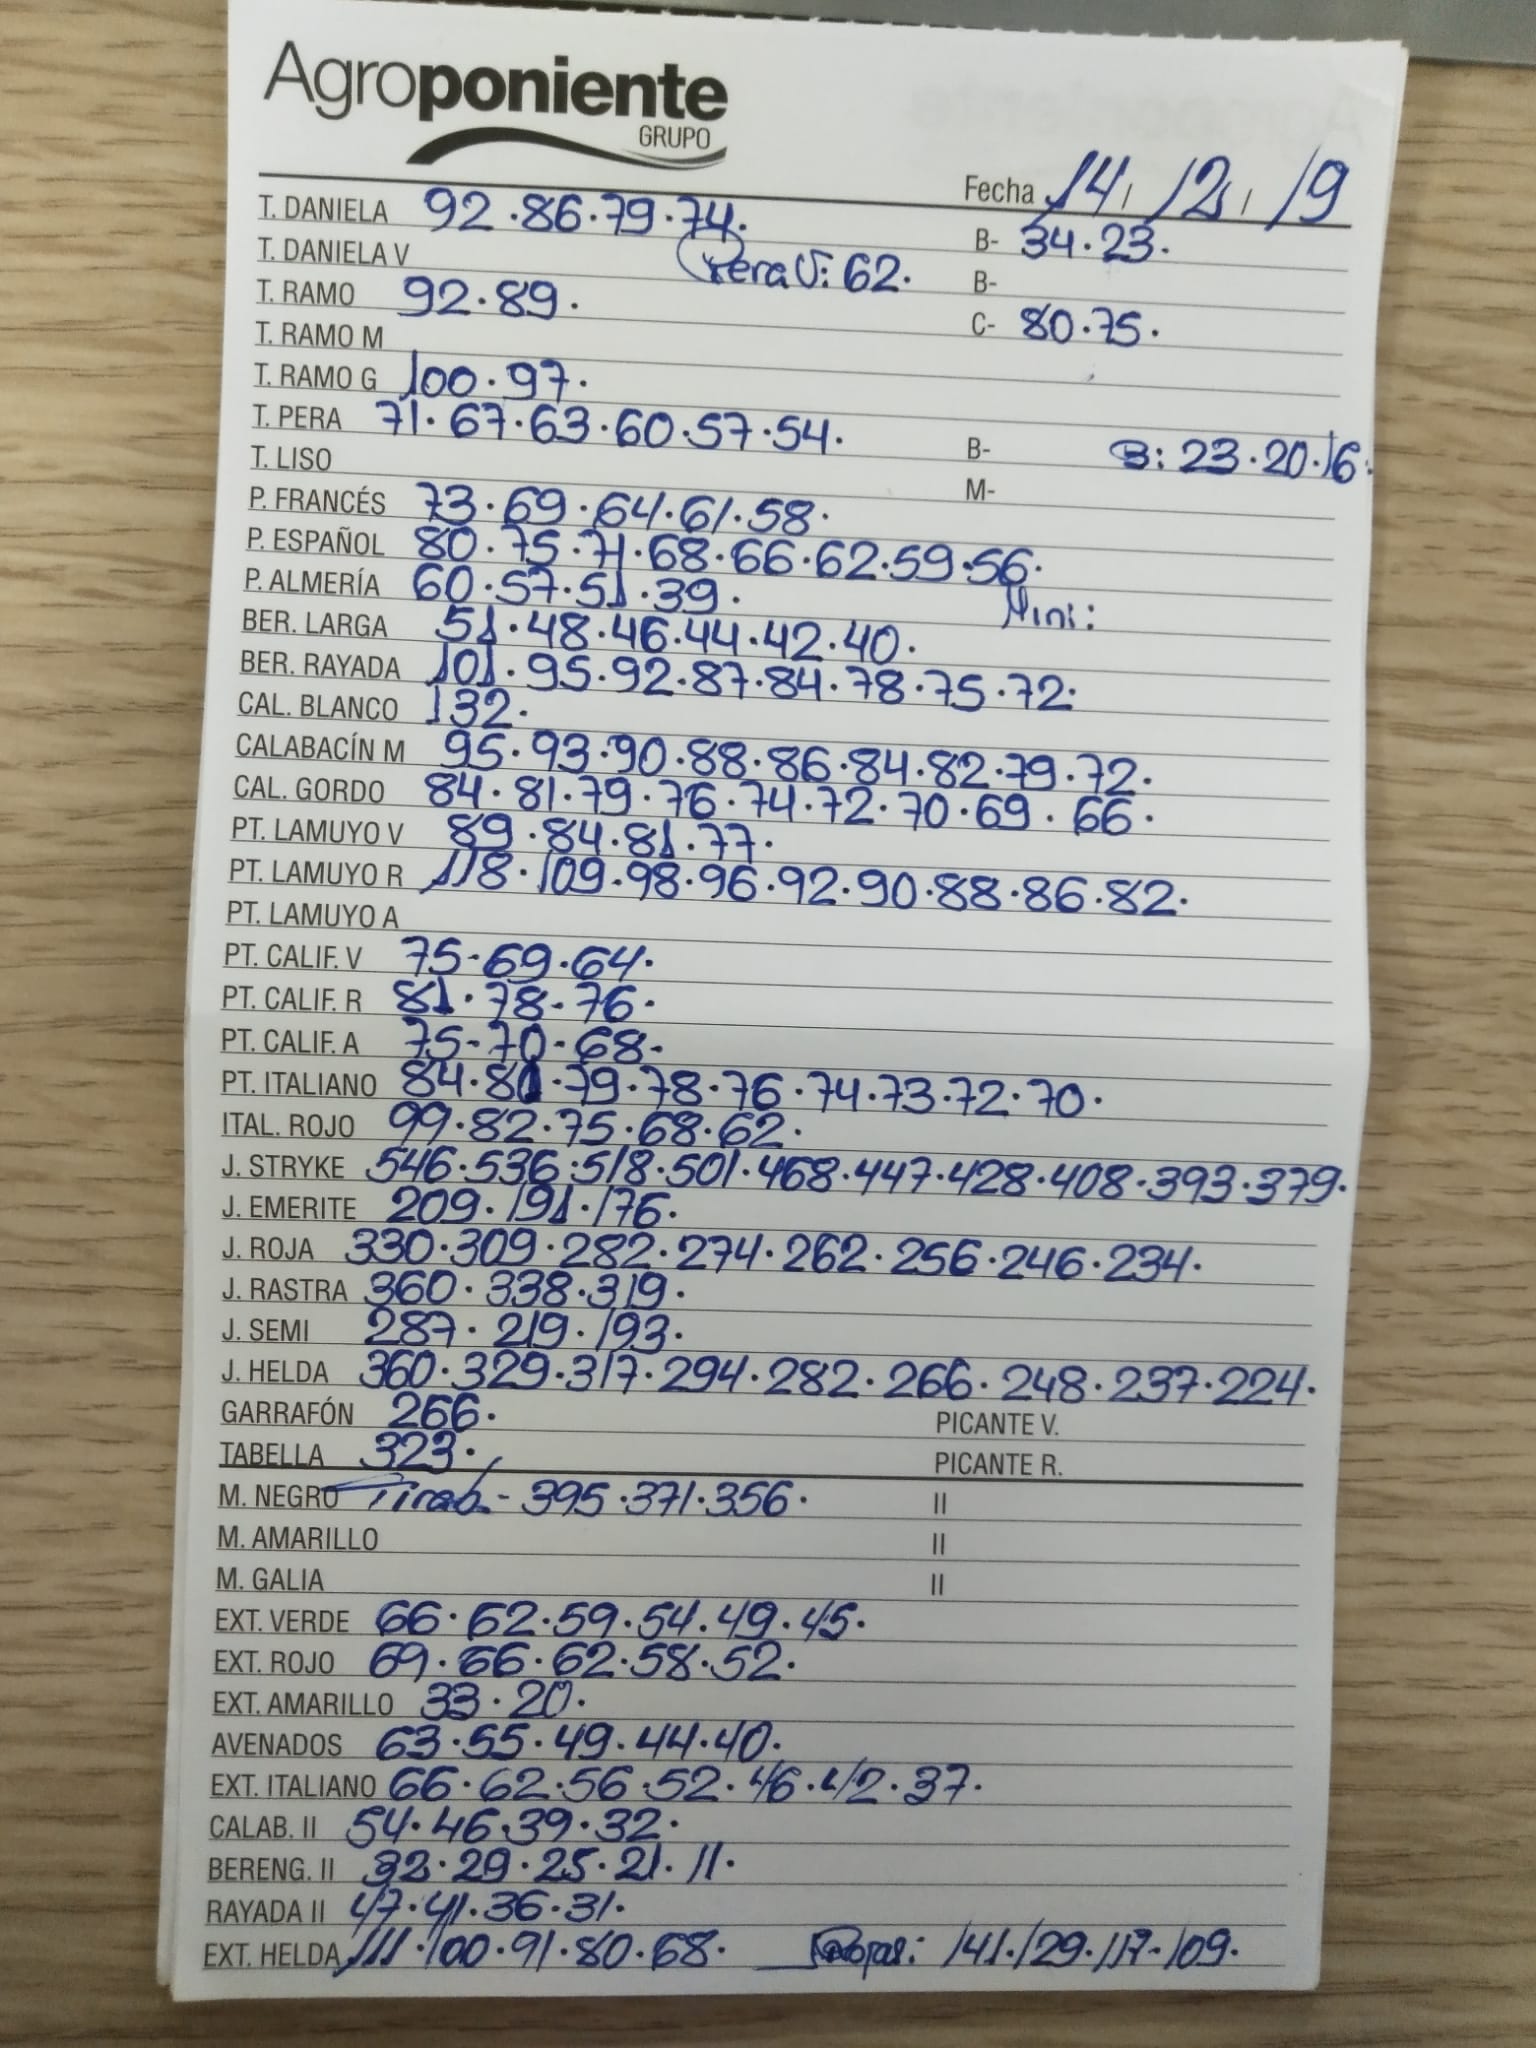 Agroponiente
GRUPO
Fecha 14/ 12/ 19
T. DANIELA 92.86.79.74. B- 34.23.
T. DANIELA V Pera V: 62. B-
T. RAMO 92.89. C- 80.75.
T. RAMO M
T. RAMO G 100.97.
T. PERA 71.67.63.60.57.54. B- B: 23.20.16.
T. LISO M-
P. FRANCÉS 73.69.64.61.58.
P. ESPAÑOL 80.75.71.68.66.62.59.56.
P. ALMERÍA 60.57.51.39. Mini:
BER. LARGA 51.48.46.44.42.40.
BER. RAYADA 101.95.92.87.84.78.75.72.
CAL. BLANCO 132.
CALABACÍN M 95.93.90.88.86.84.82.79.72.
CAL. GORDO 84.81.79.76.74.72.70.69.66.
PT. LAMUYO V 89.84.81.77.
PT. LAMUYO R 118.109.98.96.92.90.88.86.82.
PT. LAMUYO A
PT. CALIF. V 75.69.64.
PT. CALIF. R 81.78.76.
PT. CALIF. A 75-70-68-
PT. ITALIANO 84.81.79.78.76.74.73.72.70.
ITAL. ROJO 99.82.75.68.62.
J. STRYKE 546.536.518.501.468.447.428.408.393.379.
J. EMERITE 209.191.176.
J. ROJA 330.309.282.274.262.256.246.234.
J. RASTRA 360.338.319.
J. SEMI 287.219.193.
J. HELDA 360.329.317.294.282.266.248.237.224.
GARRAFÓN 266. PICANTE V.
TABELLA 323. PICANTE R.
M. NEGRO 395.371.356. II
M. AMARILLO II
M. GALIA II
EXT. VERDE 66.62.59.54.49.45.
EXT. ROJO 69.66.62.58.52.
EXT. AMARILLO 33.20.
AVENADOS 63.55.49.44.40.
EXT. ITALIANO 66.62.56.52.46.42.37.
CALAB. II 54.46.39.32.
BERENG. II 32.29.25.21.11.
RAYADA II 47.41.36.31.
EXT. HELDA 111.100.91.80.68. Rojas: 141.129.117.109.